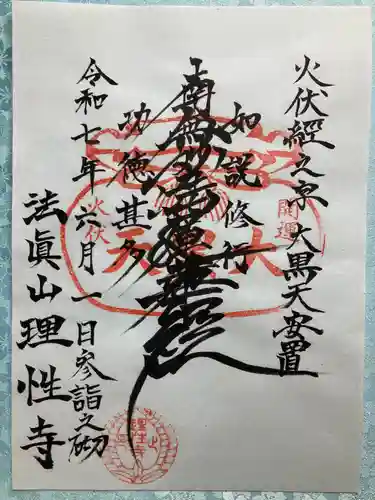 火伏経之家 大黒天安置
如説修行
南無妙法蓮華経
功徳甚多
令和七年六月一日参詣之砌
法眞山理性寺
開運
大黒天
火伏